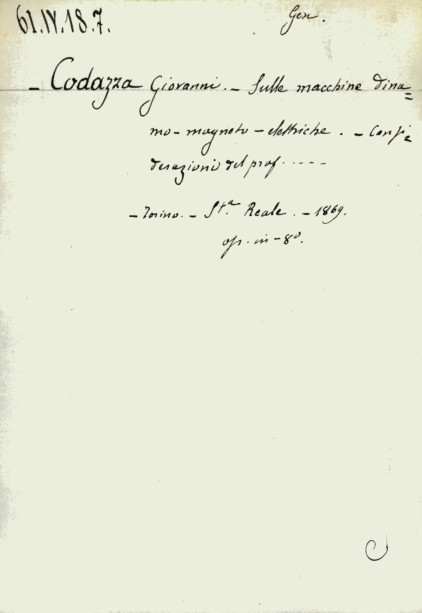 61.IV.18.7.
Gen.
- Codazza Giovanni. - Sulle macchine dina=
mo-magneto-elettriche. - Consi=
derazioni del prof. .....
- Torino. - St.a Reale. - 1869.
op. in-8º.